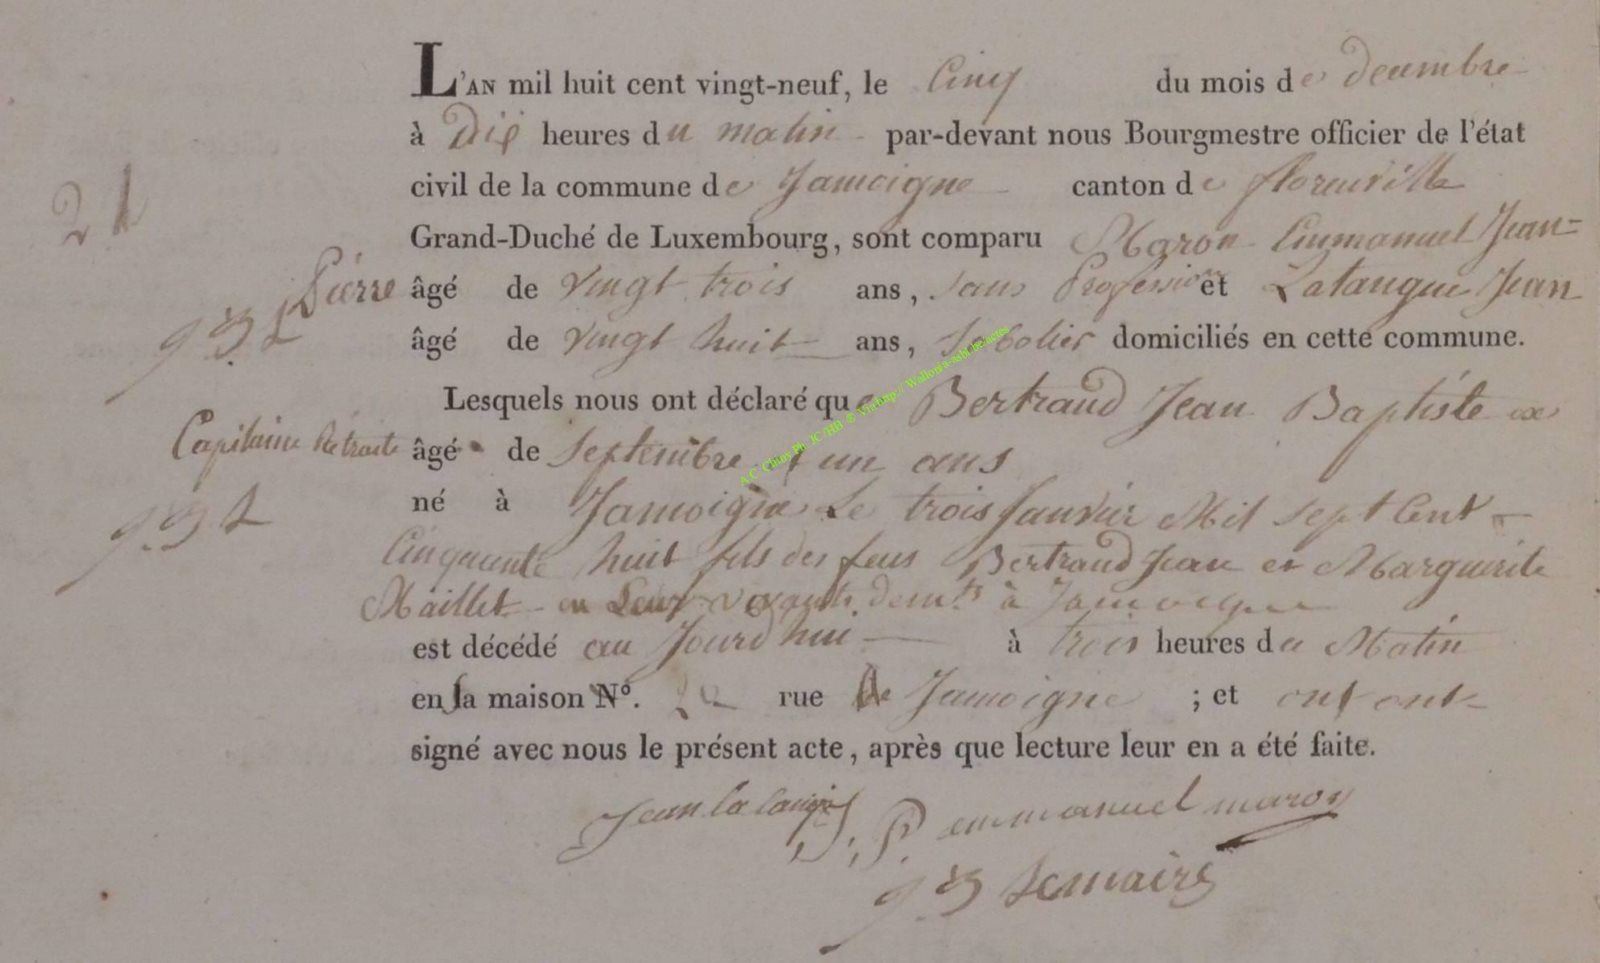 21
L'AN mil huit cent vingt-neuf, le Cinq du mois de decembre
à Dix heures du matin par-devant nous Bourgmestre officier de l'état
civil de la commune de Jamoigne canton de florenville
Grand-Duché de Luxembourg, sont comparu Maron Emmanuel Jean=
Pierre âgé de vingt trois ans, sans Profession et Latangue Jean
âgé de vingt huit ans, domiciliés en cette commune.
Lesquels nous ont déclaré que Bertrand Jean Baptiste
Capitaine Retraite âgé de Septembre un ans
né à Jamoigne Le trois Janvier Mil Sept Cent
Cinquante huit fils des feus Bertrand Jean et Marguerite
Maillet en Leur vivants demts à Jamoigne
est décédé au Jourd'hui à trois heures du Matin
en sa maison N°. rue de Jamoigne ; et ont
signé avec nous le présent acte, après que lecture leur en a été faite.
Jean
emmanuel maron
Lemaire
A.C. Chiny Ph. JC/HB @ Via http:// Wallonia-asbl.be/actes